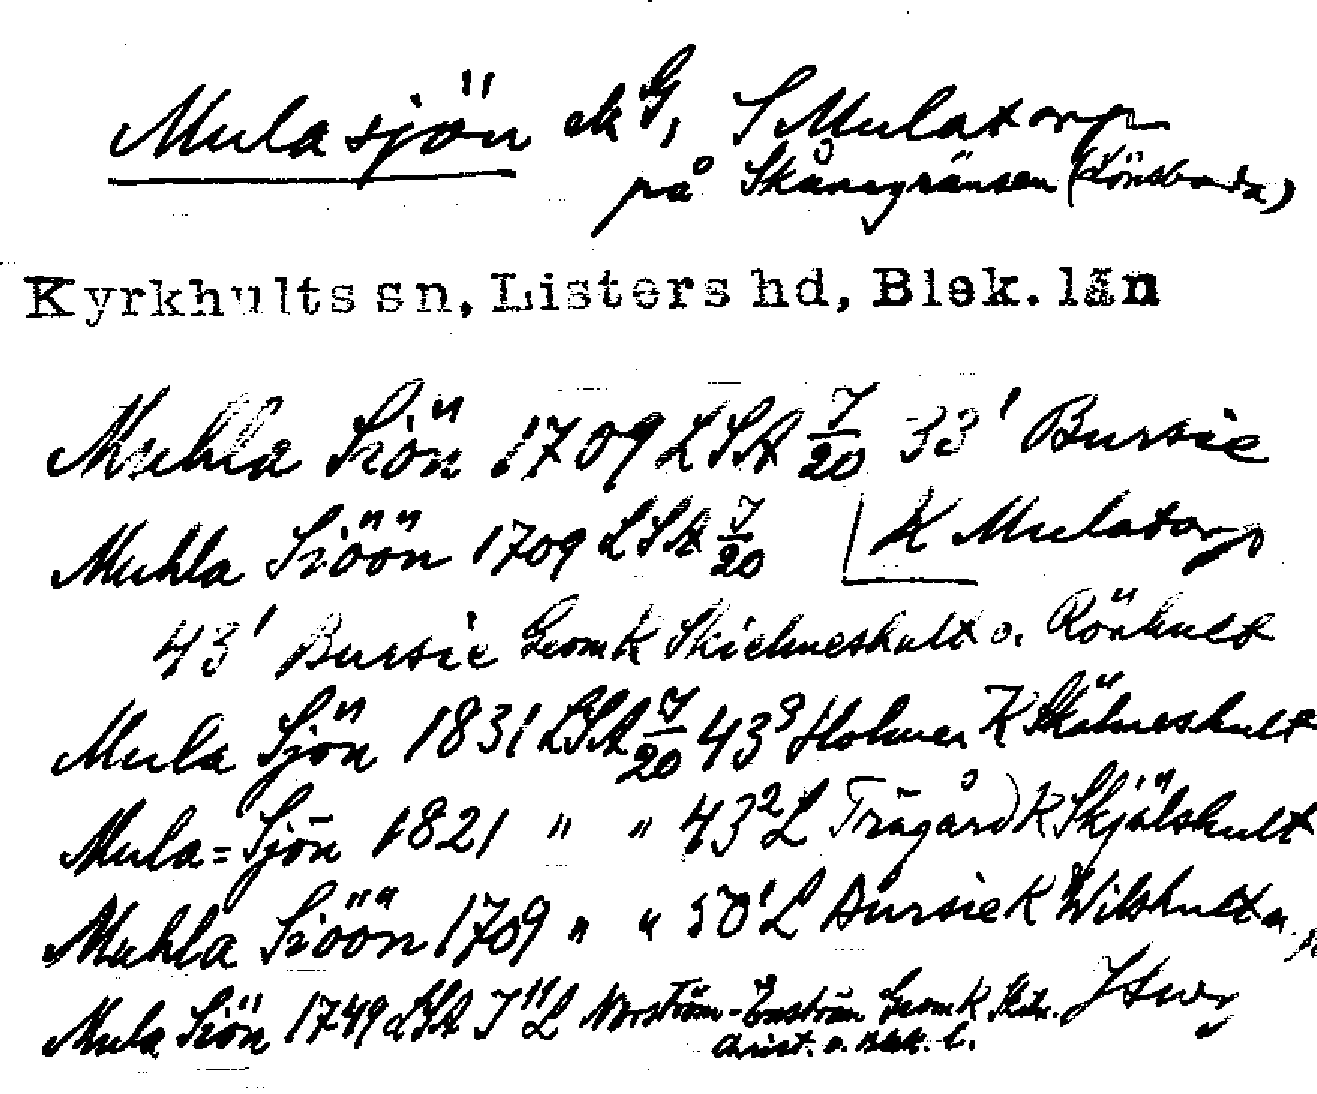 Mulasjön ek G, S Mulatorp
på Skånegränsen (Lönsboda)
Kyrkhults sn, Listers hd, Blek. län
Muhla Siön 1709 LSA 7/20 33¹ Bursie
Muhla Siöön 1709 LSA 7/20 K Mulatorp
43¹ Bursie GeomK Skielmeshult o. Rönhult
Mula Sjön 1831 LSA 7/20 43³ Holmer K Skälmeshult
Mula=Sjön 1821 " " 43² L Trägård K Skjälshult
Muhla Siöön 1709 " " 50¹ L Bursie K Wilshult
Mula Siön 1749 LSA L Norström-Enström GeomK
Christ. o. Blek. l.